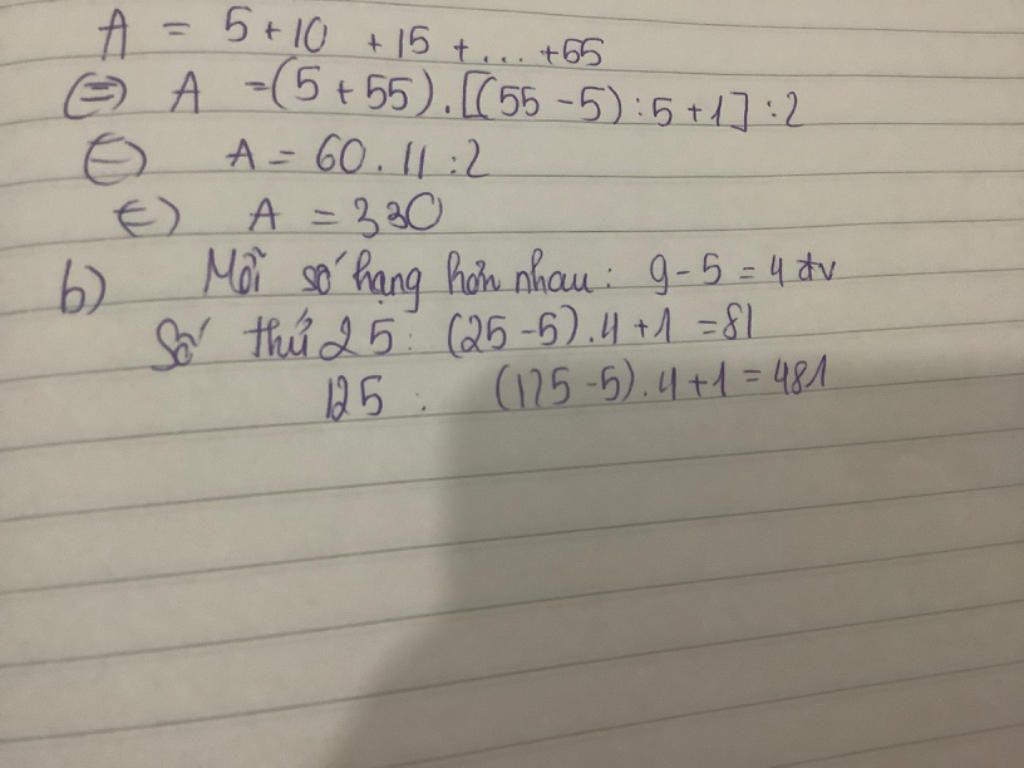 A = 5 + 10 + 15 + ... + 55
(=) A = (5 + 55) . [(55 - 5) : 5 + 1] : 2
(=) A = 60 . 11 : 2
(=) A = 330
b) Mỗi số hạng hơn nhau : 9 - 5 = 4 đv
Số thứ 25 : (25 - 5) . 4 + 1 = 81
125 : (125 - 5) . 4 + 1 = 481